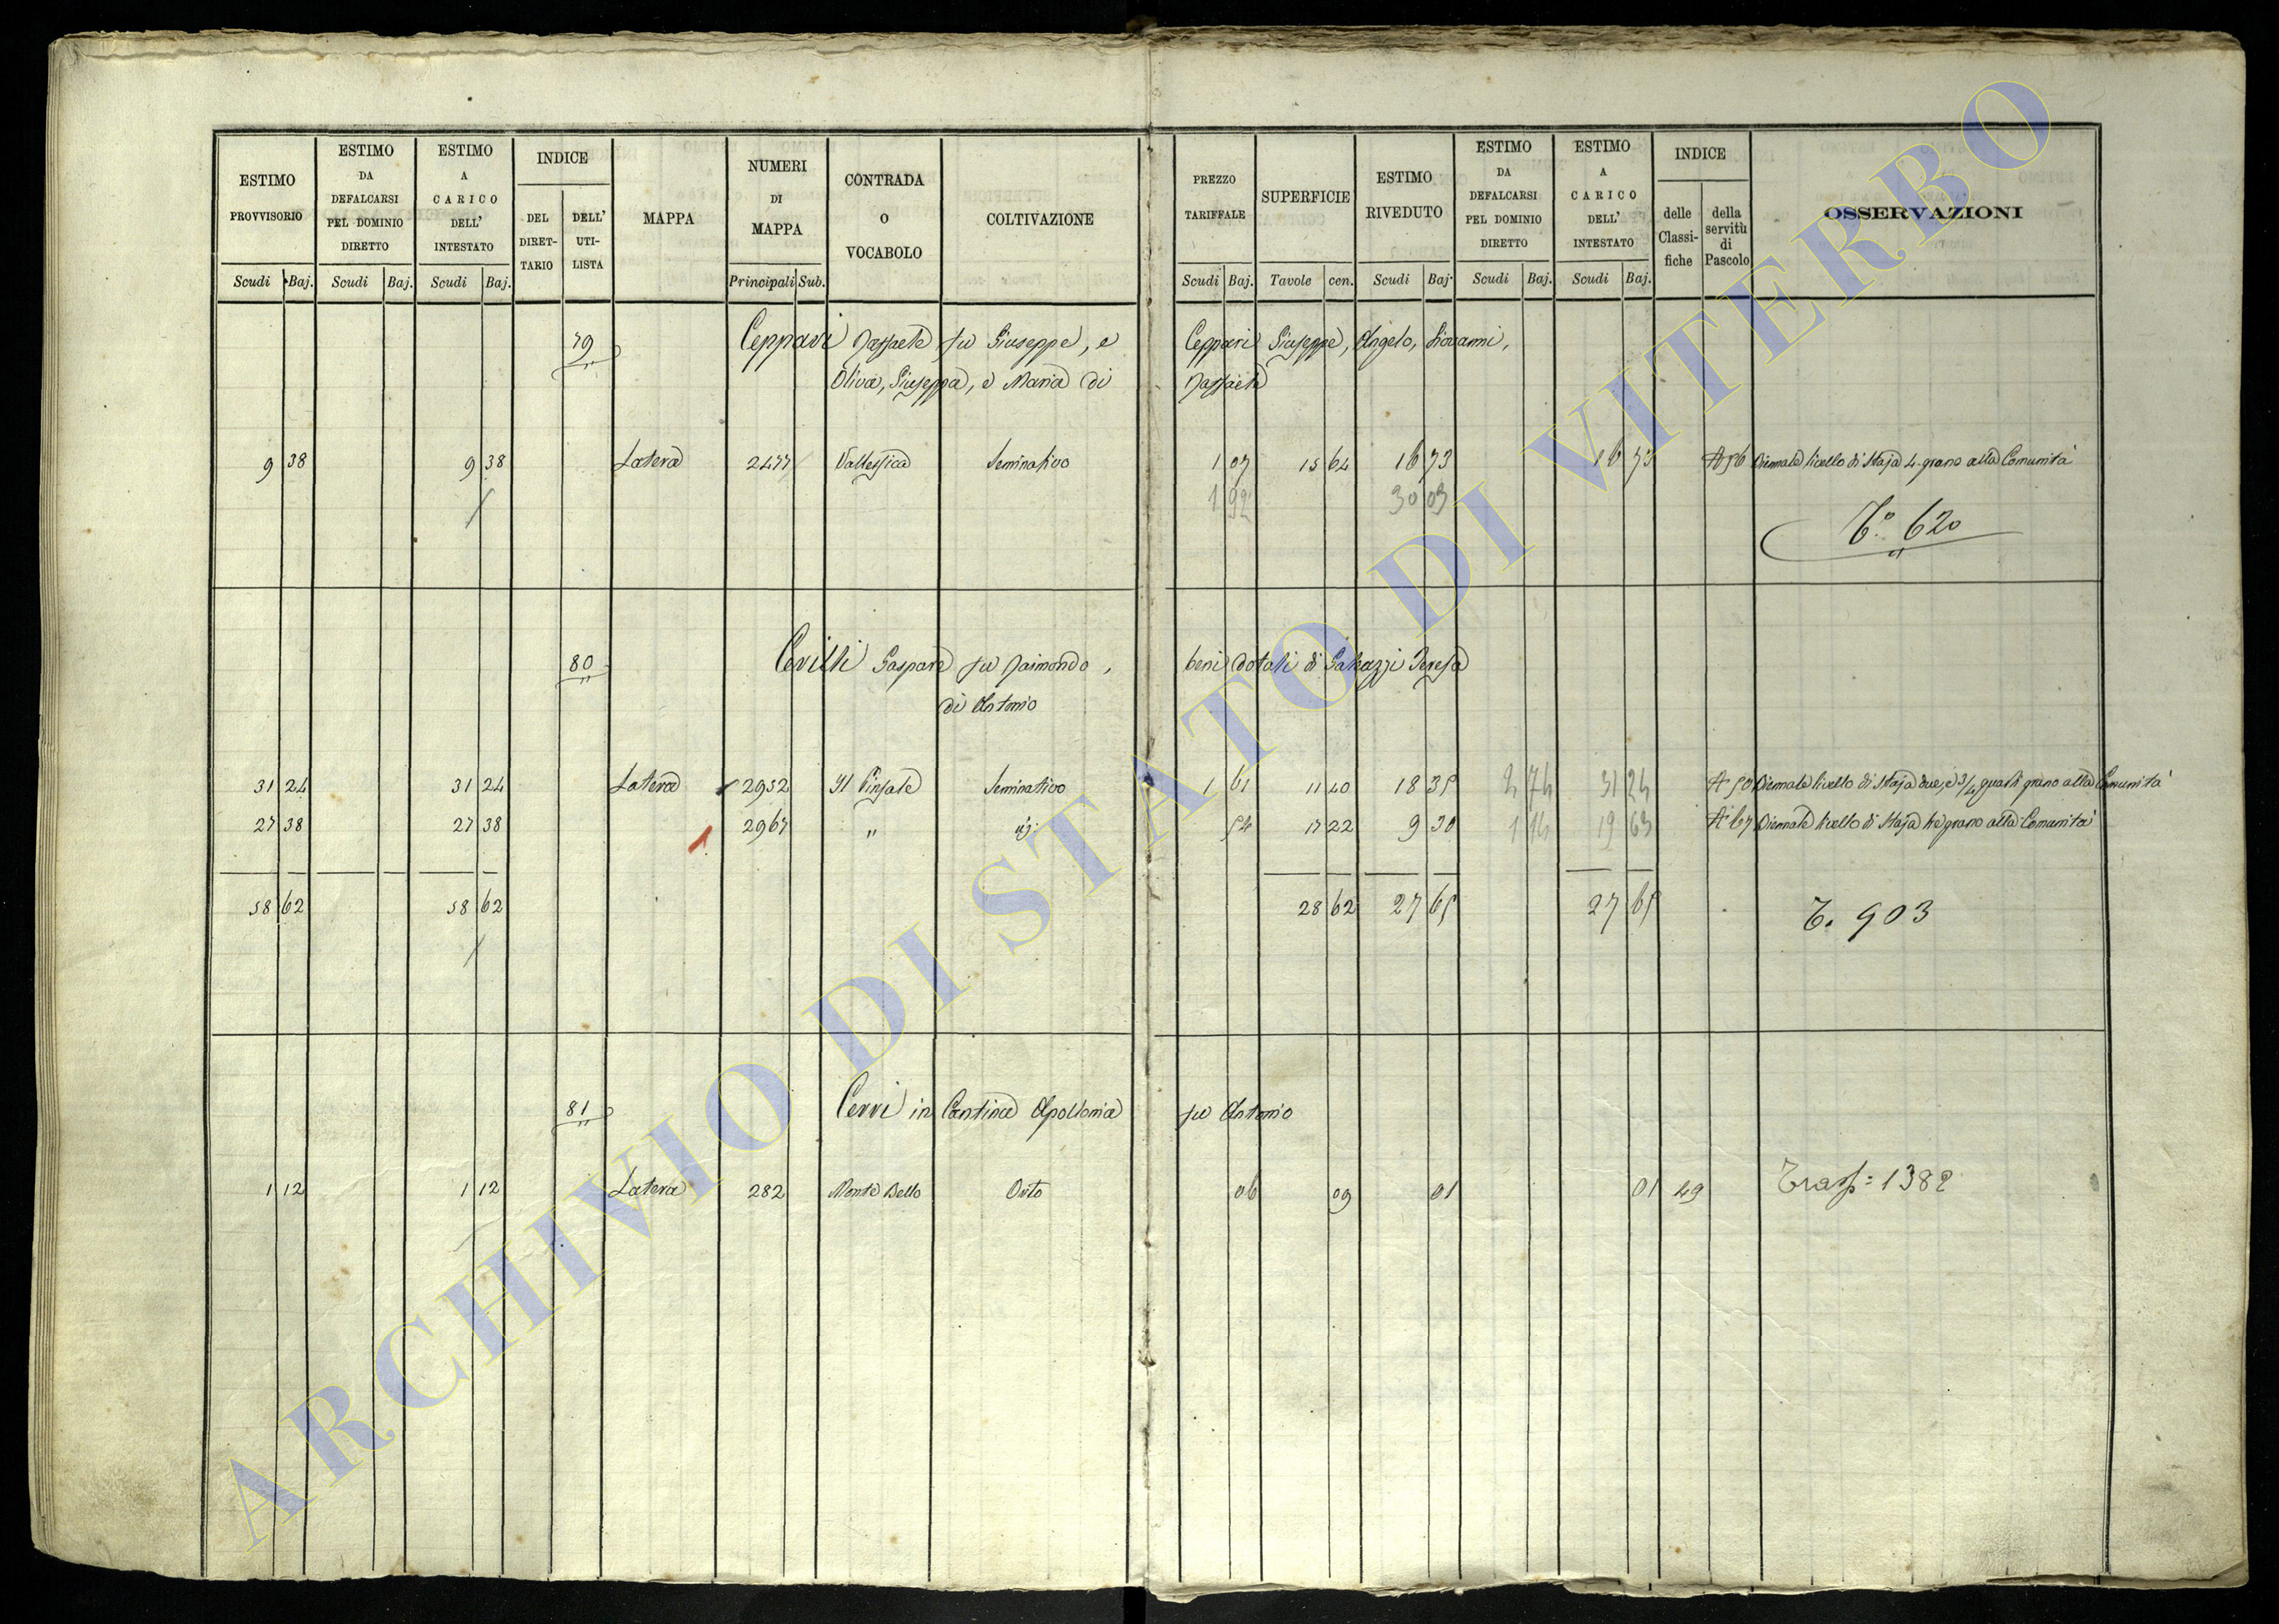 ESTIMO PROVVISORIO Scudi Baj.
ESTIMO DA DEFALCARSI PEL DOMINIO DIRETTO Scudi Baj.
ESTIMO A CARICO DELL' INTESTATO Scudi Baj.
INDICE DEL DIRET-TARIO DELL' UTI-LISTA
MAPPA
NUMERI DI MAPPA Principali Sub.
CONTRADA O VOCABOLO
COLTIVAZIONE
PREZZO TARIFFALE Scudi Baj.
SUPERFICIE Tavole cen.
ESTIMO RIVEDUTO Scudi Baj.
ESTIMO DA DEFALCARSI PEL DOMINIO DIRETTO Scudi Baj.
ESTIMO A CARICO DELL' INTESTATO Scudi Baj.
INDICE delle Classi-fiche della servitù di Pascolo
OSSERVAZIONI
79 Ceppari Raffaele fu Giuseppe, e Ceppari Giuseppe, Angelo, Giovanni,
Oliva, Giuseppa, e Maria di Raffaele
9 38 9 38 Latera 2477 Vallessica Seminativo 1 07 15 64 16 73 16 73 A 56 Biennale livello di Staja 4 grano alla Comunità
1 92 30 03
T.° 620
80 Cerilli Gaspare fu Raimondo, beni dotali di Galeazzi Teresa
di Antonio
31 24 31 24 Latera 2952 Il Pinsale Seminativo 1 61 11 40 18 35 2 74 31 24 A 50 Biennale livello di Staja due, e 3/4 quarti grano alla Comunità
27 38 27 38 1 2967 " id: 54 17 22 9 30 1 14 19 63 A 67 Biennale livello di Staja tre grano alla Comunità
58 62 58 62 28 62 27 65 27 65 T. 903
81 Cervi in Cantina Apollonia fu Antonio
1 12 1 12 Latera 282 Monte Bello Orto 06 09 01 01 49 Trasp: 1382
ARCHIVIO DI STATO DI VITERBO